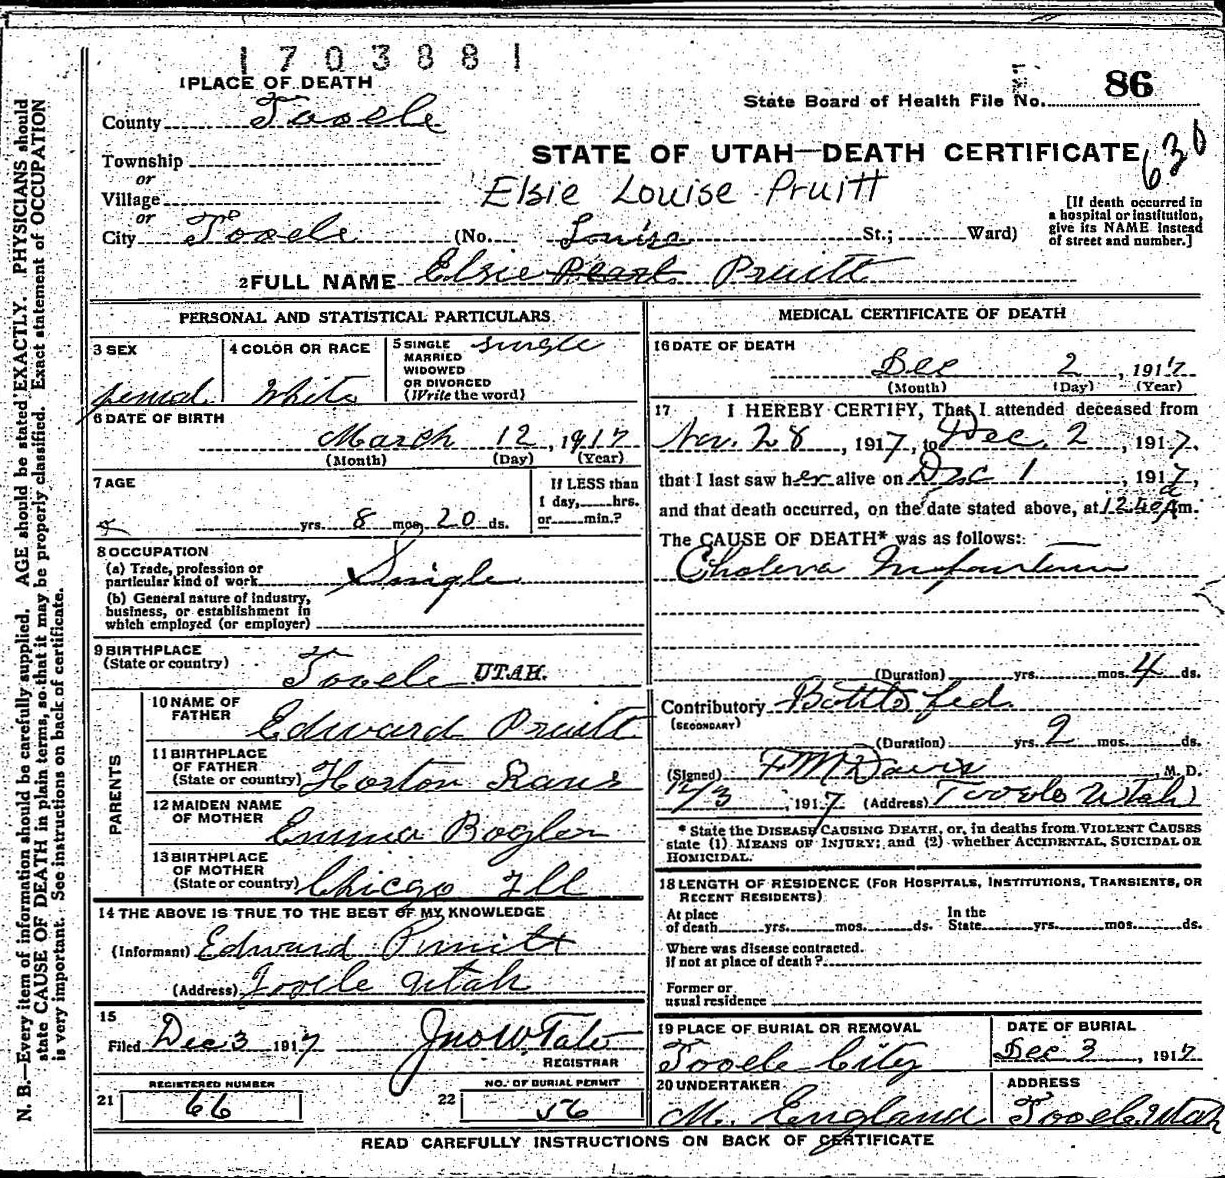 1703881
1 PLACE OF DEATH
State Board of Health File No. 86
County Tooele
630
STATE OF UTAH—DEATH CERTIFICATE
Township
or
Village
Elsie Louise Pruitt
[If death occurred in
a hospital or institution,
give its NAME instead
of street and number.]
or
City Tooele (No. St.; Ward)
Louise
2 FULL NAME Elsie Pearl Pruitt
PERSONAL AND STATISTICAL PARTICULARS
3 SEX
femal
4 COLOR OR RACE
White
5 SINGLE
MARRIED
WIDOWED
OR DIVORCED
(Write the word)
single
6 DATE OF BIRTH
March 12, 1917
(Month) (Day) (Year)
7 AGE
If LESS than
1 day, hrs.
or min.?
yrs. 8 mos. 20 ds.
8 OCCUPATION
(a) Trade, profession or
particular kind of work
Single
(b) General nature of industry,
business, or establishment in
which employed (or employer)
9 BIRTHPLACE
(State or country)
Tooele UTAH.
PARENTS
10 NAME OF
FATHER
Edward Pruitt
11 BIRTHPLACE
OF FATHER
(State or country) Horton Kans
12 MAIDEN NAME
OF MOTHER
Emma Bogler
13 BIRTHPLACE
OF MOTHER
(State or country) Chicgo Ill
14 THE ABOVE IS TRUE TO THE BEST OF MY KNOWLEDGE
(Informant) Edward Pruitt
(Address) Tooele Utah
15
Filed Dec 3 1917 Jno W Tate
REGISTRAR
REGISTERED NUMBER
21 66
NO. OF BURIAL PERMIT
22 56
MEDICAL CERTIFICATE OF DEATH
16 DATE OF DEATH
Dec 2, 1917
(Month) (Day) (Year)
17 I HEREBY CERTIFY, That I attended deceased from
Nov. 28, 1917, to Dec. 2, 1917.
that I last saw her alive on Dec 1, 1917,
and that death occurred, on the date stated above, at 12.40 A m.
The CAUSE OF DEATH* was as follows:
Cholera Infantum
(Duration) yrs. mos. 4 ds.
Contributory Bottle fed
(SECONDARY)
(Duration) yrs. 2 mos. ds.
(Signed) F M Davis, M. D.
12/3, 1917 (Address) Tooele Utah
* State the DISEASE CAUSING DEATH, or, in deaths from VIOLENT CAUSES
state (1) MEANS OF INJURY; and (2) whether ACCIDENTAL, SUICIDAL OR
HOMICIDAL.
18 LENGTH OF RESIDENCE (FOR HOSPITALS, INSTITUTIONS, TRANSIENTS, OR
RECENT RESIDENTS)
At place
of death yrs. mos. ds.
In the
State yrs. mos. ds.
Where was disease contracted.
If not at place of death?
Former or
usual residence
19 PLACE OF BURIAL OR REMOVAL
Tooele City
DATE OF BURIAL
Dec 3, 1917
20 UNDERTAKER
M. England
ADDRESS
Tooele Utah
READ CAREFULLY INSTRUCTIONS ON BACK OF CERTIFICATE
N. B.—Every item of information should be carefully supplied. AGE should be stated EXACTLY. PHYSICIANS should
state CAUSE OF DEATH in plain terms, so that it may be properly classified. Exact statement of OCCUPATION
is very important. See instructions on back of certificate.